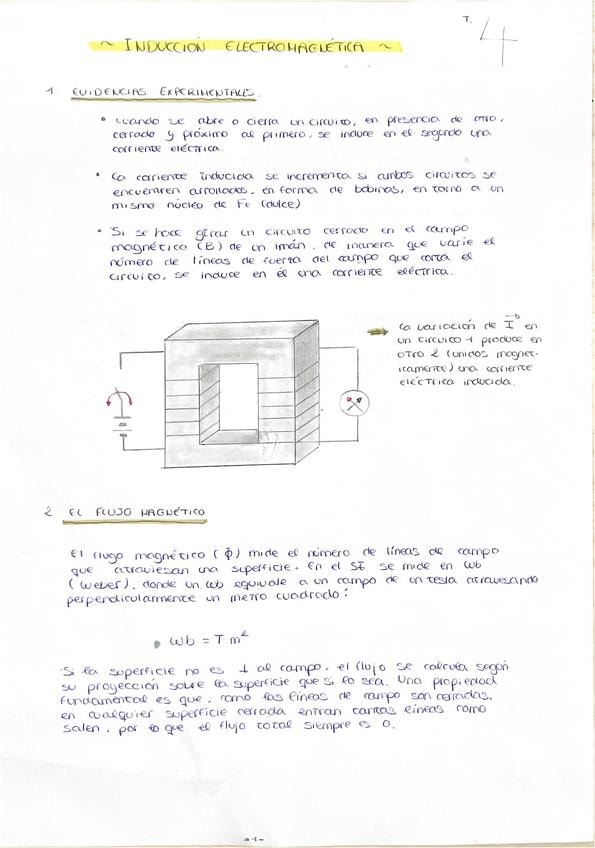 T. 4
~ INDUCCIÓN ELECTROMAGNÉTICA ~
1. EVIDENCIAS EXPERIMENTALES.
• Cuando se abre o cierra un circuito, en presencia de otro,
cerrado y próximo al primero, se induce en el segundo una
corriente eléctrica.
• La corriente inducida se incrementa si ambos circuitos se
encuentren arrollados, en forma de bobinas, en torno a un
mismo núcleo de Fe (dulce)
• Si se hace girar un circuito cerrado en el campo
magnético (B) de un imán, de manera que varíe el
número de líneas de fuerza del campo que corta el
circuito, se induce en él una corriente eléctrica.
La variación de I en
un circuito 1 produce en
otro 2 (unidos magnet-
icamente) una corriente
eléctrica inducida.
2 EL FLUJO MAGNÉTICO
El flugo magnético (ϕ) mide el número de líneas de campo
que atraviesan una superficie. En el SI se mide en Wb
(Weber), donde un Wb equivale a un campo de un tesla atravesando
perpendicularmente un metro cuadrado:
• Wb = T m²
Si la superficie no es ⊥ al campo, el flujo se calcula según
su proyección sobre la superficie que si lo sea. Una propiedad
fundamental es que, como las líneas de campo son cerradas,
en cualquier superficie cerrada entran tantas líneas como
salen, por lo que el flujo total siempre es 0.
-1-